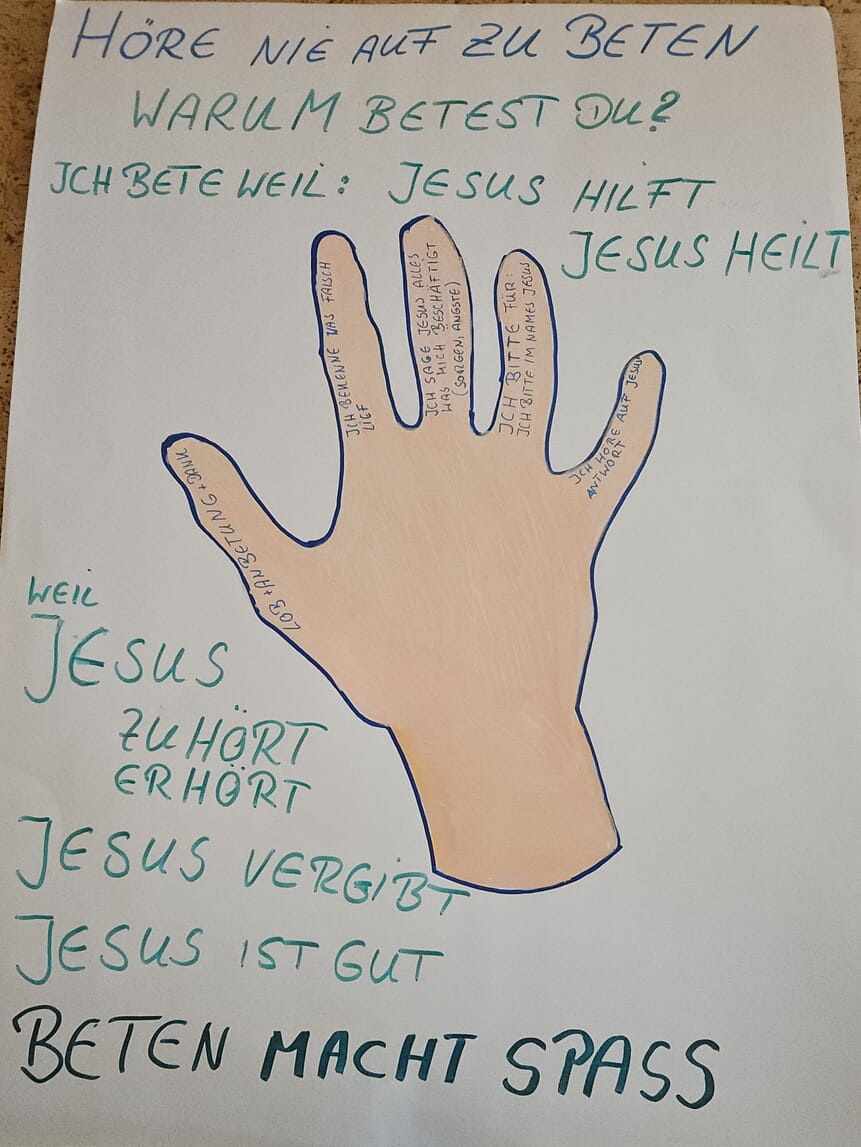 HÖRE NIE AUF ZU BETEN
WARUM BETEST DU?
ICH BETE WEIL: JESUS HILFT
JESUS HEILT
LOB + ANBETUNG + DANK
ICH BEKENNE WAS FALSCH
LIEF
ICH SAGE JESUS ALLES
WAS MICH BESCHÄFTIGT
(SORGEN, ÄNGSTE)
ICH BITTE FÜR:
ICH BITTE IM NAMES JESUS
ICH HÖRE AUF JESUS
ANTWORT
WEIL
JESUS
ZUHÖRT
ERHÖRT
JESUS VERGIBT
JESUS IST GUT
BETEN MACHT SPASS